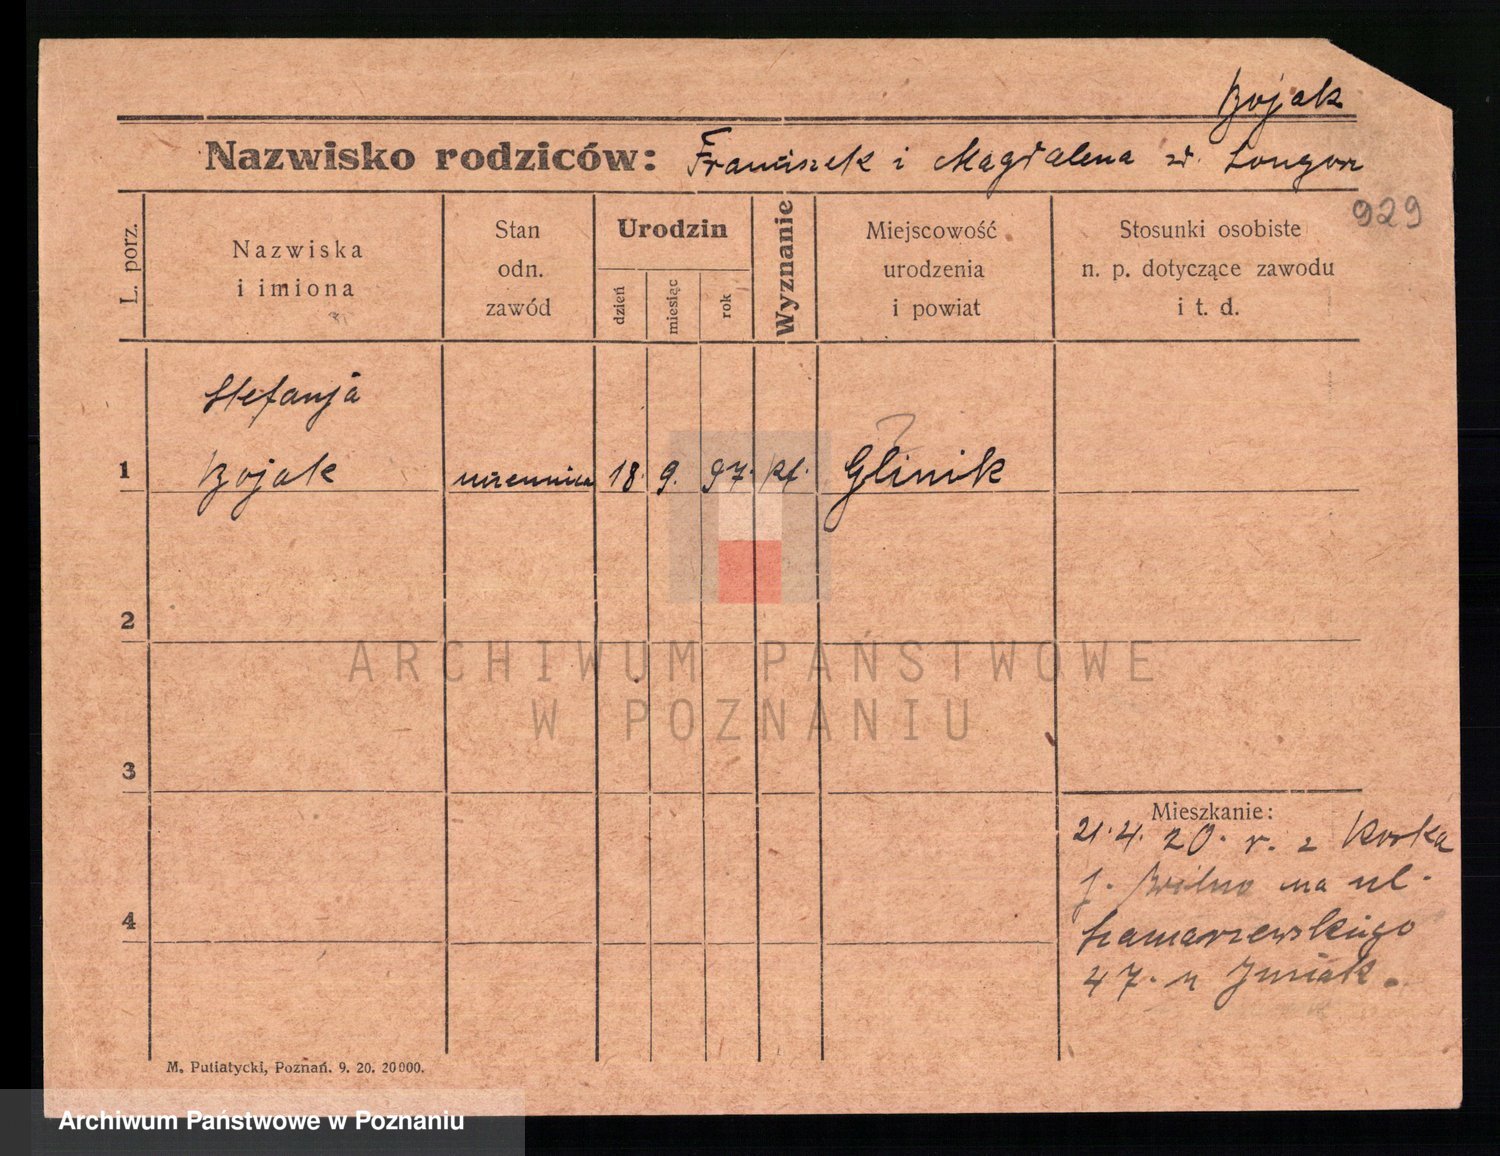 Bojak
Nazwisko rodziców: Franciszek i Magdalena zd. Longosz
929
L. porz.
Nazwiska
i imiona
Stan
odn.
zawód
Urodzin
dzień
miesiąc
rok
Wyznanie
Miejscowość
urodzenia
i powiat
Stosunki osobiste
n. p. dotyczące zawodu
i t. d.
Stefanja
1 Bojak uczennica 18. 9. 97. kt. Glinik
2
3
4
Mieszkanie:
21. 4. 20. r. z
na ul.
Szamarzewskiego
47. u
M. Putiatycki, Poznań. 9. 20. 20000.
ARCHIWUM PAŃSTWOWE
W POZNANIU
Archiwum Państwowe w Poznaniu